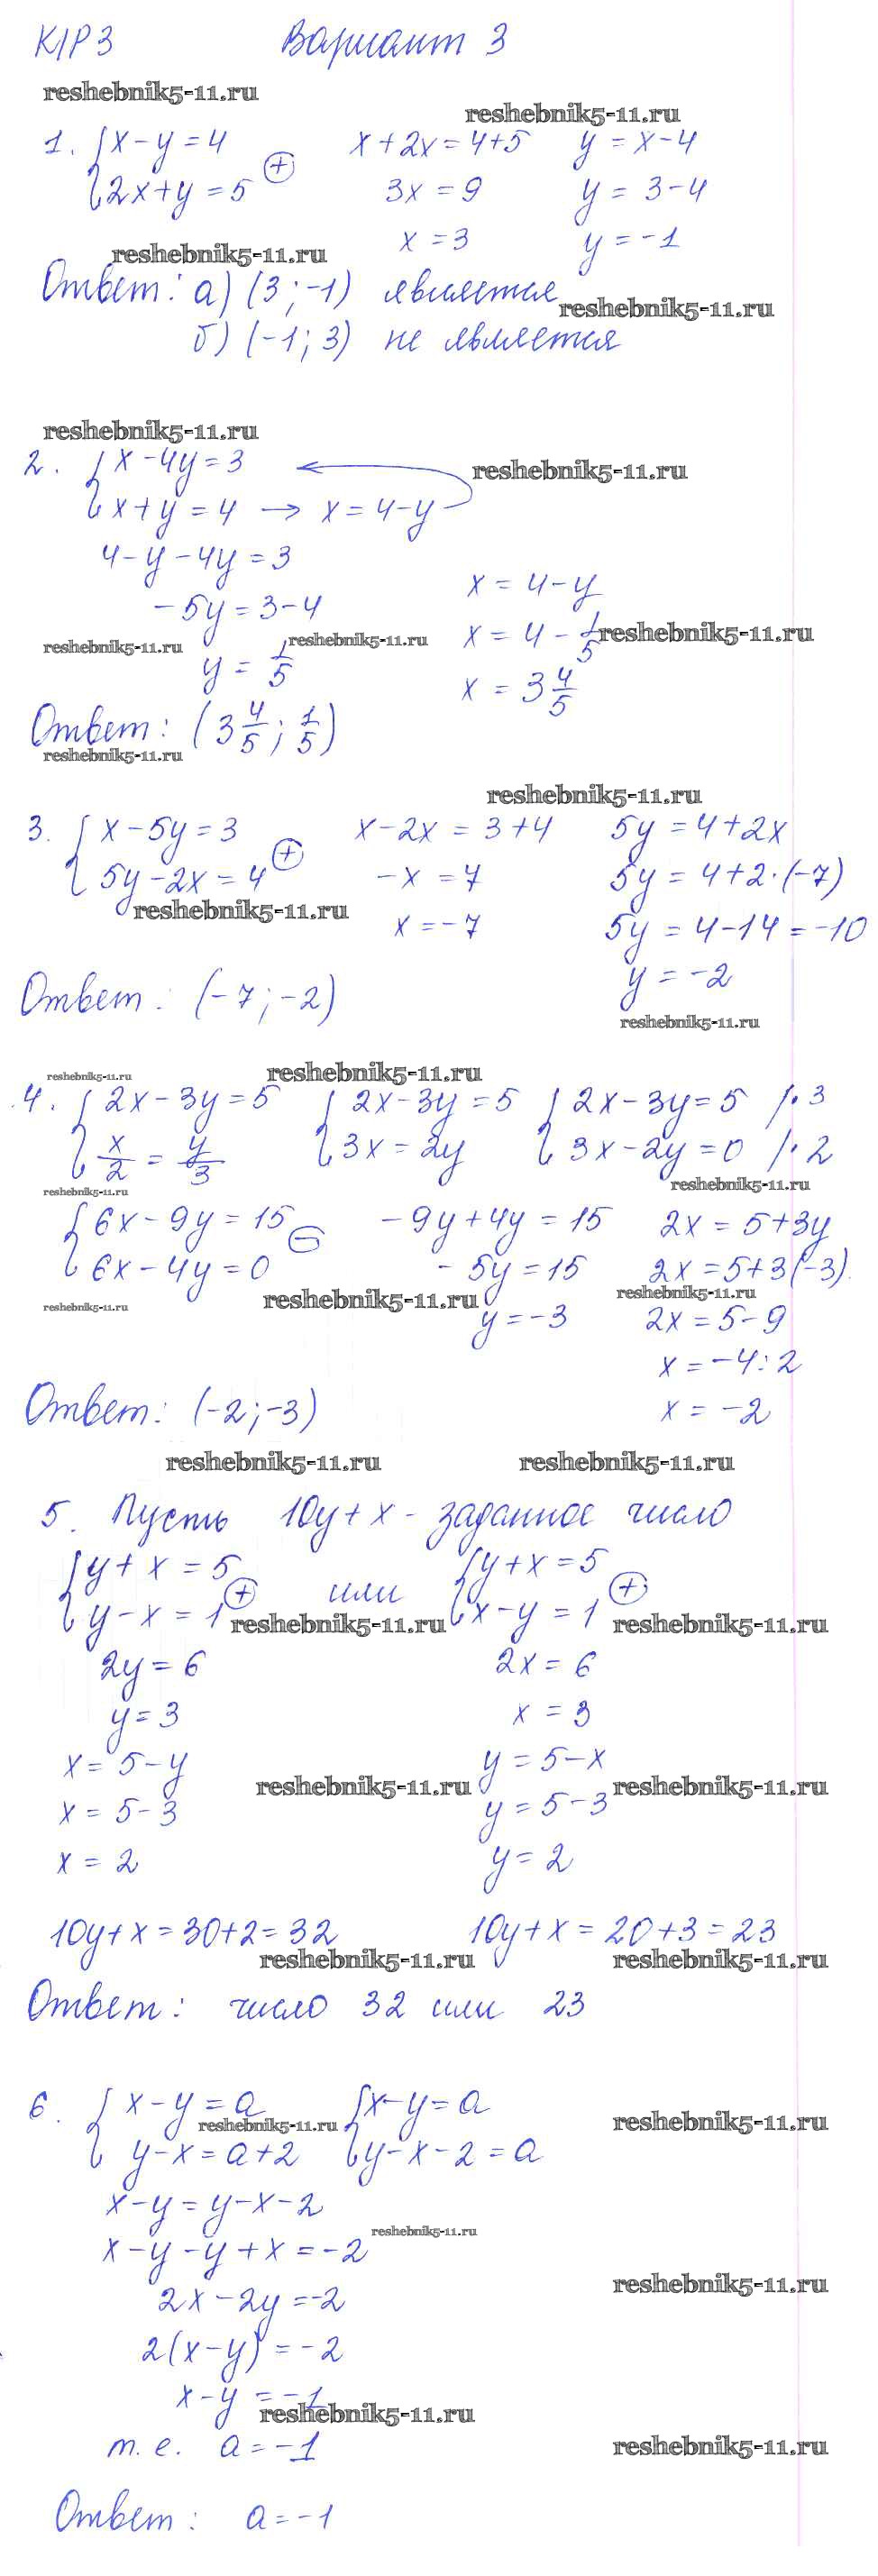 К/Р 3 Вариант 3
reshebnik5-11.ru
reshebnik5-11.ru
1. { x - y = 4 x + 2x = 4 + 5 y = x - 4
2x + y = 5 ⊕ 3x = 9 y = 3 - 4
x = 3 y = -1
reshebnik5-11.ru
Ответ: а) (3; -1) является
reshebnik5-11.ru
б) (-1; 3) не является
reshebnik5-11.ru
2. { x - 4y = 3 ←
reshebnik5-11.ru
x + y = 4 → x = 4 - y
4 - y - 4y = 3
x = 4 - y
-5y = 3 - 4
x = 4 - 1/5
reshebnik5-11.ru
reshebnik5-11.ru
reshebnik5-11.ru
y = 1/5
x = 3 4/5
Ответ: (3 4/5; 1/5)
reshebnik5-11.ru
reshebnik5-11.ru
3. { x - 5y = 3 x - 2x = 3 + 4 5y = 4 + 2x
5y - 2x = 4 ⊕ -x = 7 5y = 4 + 2·(-7)
reshebnik5-11.ru
x = -7 5y = 4 - 14 = -10
y = -2
Ответ: (-7; -2)
reshebnik5-11.ru
reshebnik5-11.ru
reshebnik5-11.ru
4. { 2x - 3y = 5 { 2x - 3y = 5 { 2x - 3y = 5 /·3
x/2 = y/3 3x = 2y 3x - 2y = 0 /·2
reshebnik5-11.ru
reshebnik5-11.ru
{ 6x - 9y = 15 -9y + 4y = 15 2x = 5 + 3y
6x - 4y = 0 ⊖ -5y = 15 2x = 5 + 3(-3)
reshebnik5-11.ru
reshebnik5-11.ru
reshebnik5-11.ru
y = -3 2x = 5 - 9
x = -4 : 2
Ответ: (-2; -3) x = -2
reshebnik5-11.ru
reshebnik5-11.ru
5. Пусть 10y + x - заданное число
{ y + x = 5 или { y + x = 5
y - x = 1 ⊕ x - y = 1 ⊕
reshebnik5-11.ru
reshebnik5-11.ru
2y = 6 2x = 6
y = 3 x = 3
x = 5 - y y = 5 - x
reshebnik5-11.ru
reshebnik5-11.ru
x = 5 - 3 y = 5 - 3
x = 2 y = 2
10y + x = 30 + 2 = 32 10y + x = 20 + 3 = 23
reshebnik5-11.ru
reshebnik5-11.ru
Ответ: число 32 или 23
6. { x - y = a { x - y = a
reshebnik5-11.ru
reshebnik5-11.ru
y - x = a + 2 y - x - 2 = a
x - y = y - x - 2
reshebnik5-11.ru
x - y - y + x = -2
reshebnik5-11.ru
2x - 2y = -2
2(x - y) = -2
x - y = -1
reshebnik5-11.ru
т.е. a = -1
reshebnik5-11.ru
Ответ: a = -1